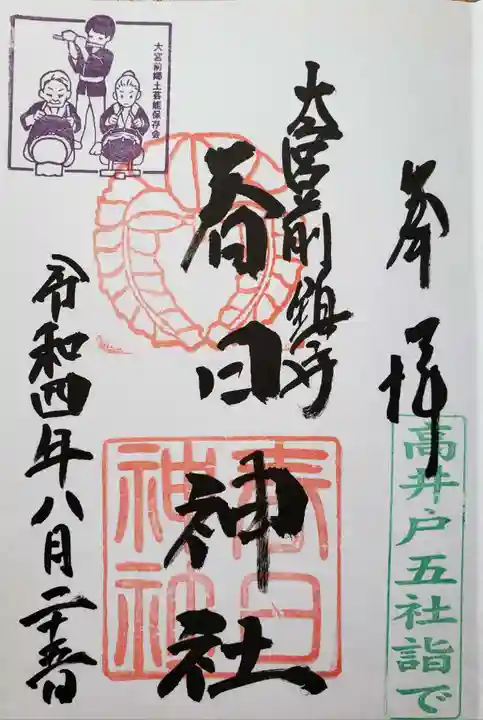 奉拝
高井戸五社詣で
大宮前鎮守
春日神社
春日
神社
令和四年八月二十五日
大宮前郷土芸能保存会